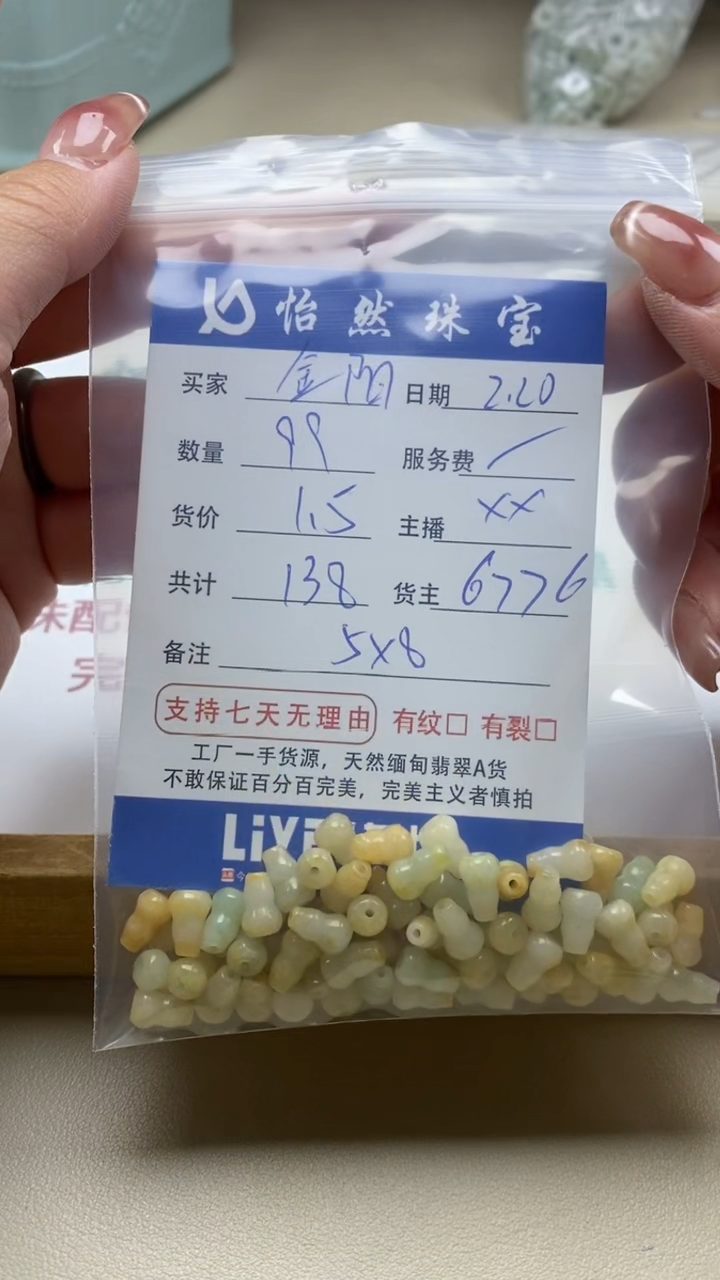 怡然珠宝
买家 金阳 日期 2.20
数量 99 服务费 /
货价 1.5 主播 XX
共计 138 货主 6776
备注 5x8
支持七天无理由 有纹□ 有裂□
工厂一手货源，天然缅甸翡翠A货
不敢保证百分百完美，完美主义者慎拍